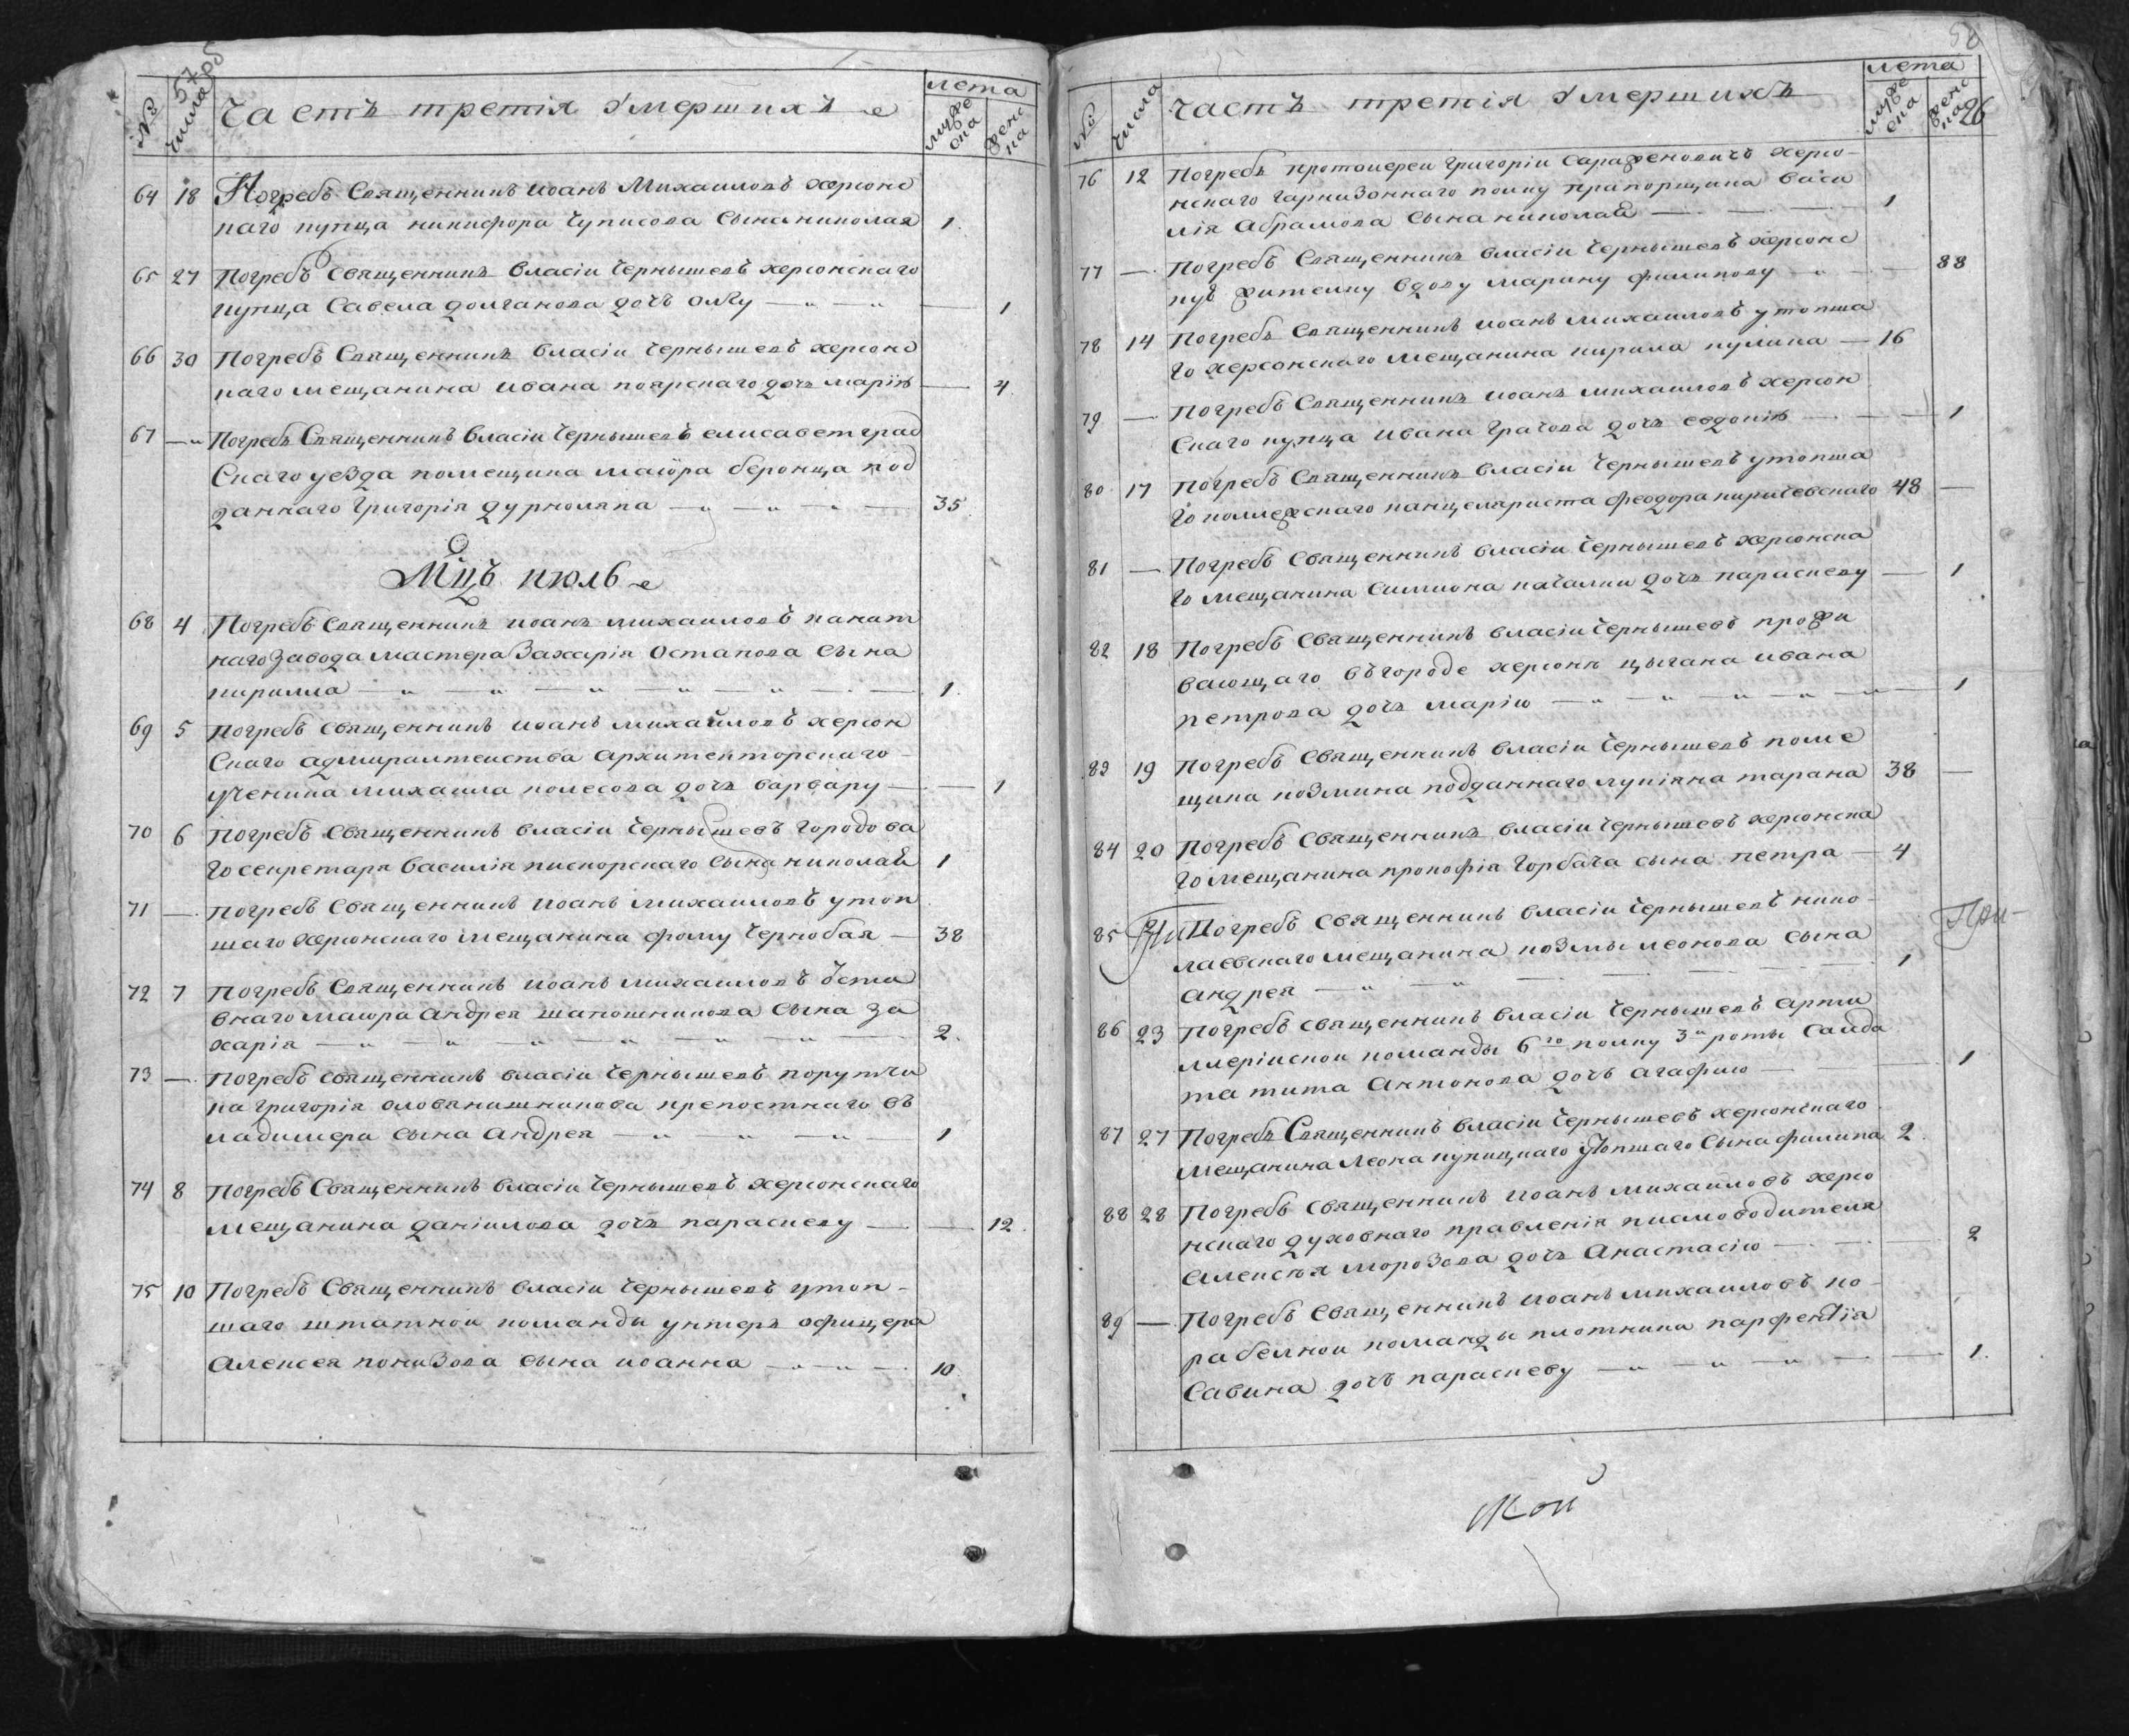 57об
№
числа
Часть третія Умершихъ
лета
мужеска
женска
64 18 Погребъ Священникъ иоанъ Михаиловъ херсонс
каго купца никифора Чуписова Сына николая 1
65 27 Погребъ Священникъ Власіи Чернышевъ херсонскаго
купца Савела долганова дочь олгу 1
66 30 Погребъ Священникъ Власіи Чернышевъ херсонс
каго мещанина ивана поярскаго дочь марію 4
67 — Погребъ Священникъ Власіи Чернышевъ елисаветград
Скаго уезда помещика маіора беронца под
даннаго Григорія дурноляпа 35
Мцъ июль
68 4 Погребъ Священникъ иоанъ михаиловъ канат
наго завода мастера Захарія Остапова Сына
кирилла 1
69 5 Погребъ Священникъ иоанъ михаиловъ херсон
Скаго адмиралтеиства Архитекторскаго
ученика михаила колесова дочь варвару 1
70 6 Погребъ Священникъ власіи Чернышевъ Городова
Го секретаря Василія пискорскаго Сына николаи 1
71 — Погребъ Священникъ иоанъ михаиловъ утоп
шаго херсонскаго мещанина фому Чернобая 38
72 7 Погребъ Священникъ иоанъ михаиловъ Уста
внаго маиора Андрея шапошникова Сына За
харія 2
73 — Погребъ Священникъ власіи Чернышевъ порутчи
ка григорія оловянишникова крепостнаго въ
ладимера сына Андрея 1
74 8 Погребъ Священникъ власіи Чернышевъ херсонскаго
мещанина даніилова дочь параскеву 12
75 10 Погребъ Священникъ власіи Чернышевъ утоп-
шаго штатнои команды унтеръ офицера
Алексея понизова сына иоанна 10
58
26
№
числа
Часть третія Умершихъ
лета
мужеска
женска
76 12 Погребъ протоиереи Григоріи Сараженовичь херсо-
нскаго гарнизоннаго полку прапорщика Васи
лія Абрамова Сына николаи 1
77 — Погребъ Священникъ власіи Чернышевъ херсонс
кую жителку вдову марину филипову 88
78 14 Погребъ Священникъ иоанъ михаиловъ утопша
го херсонскаго мещанина кирила кулика 16
79 — Погребъ Священникъ иоанъ михаиловъ херсон
Скаго купца ивана Грачова дочь евдокію 1
80 17 Погребъ Священникъ власіи Чернышевъ утопша
го коллежскаго канцеляриста феодора киричевскаго 48
81 — Погребъ Священникъ власіи Чернышевъ херсонска
го мещанина Симиона качалки дочь параскеву 1
82 18 Погребъ Священникъ власіи Чернышевъ прожи
вающаго въ городе херсонъ цыгана ивана
петрова дочь марію 1
83 19 Погребъ Священникъ власіи Чернышевъ поме
щика козмина подданнаго лукіяна тарана 38
84 20 Погребъ Священникъ власіи Чернышевъ херсонска
го мещанина прокофія Горбача сына петра 4
85 21 Погребъ Священникъ власіи Чернышевъ нико-
лаевскаго мещанина козмы леонова сына
андрея 1
86 23 Погребъ священникъ власіи Чернышевъ арти
леріискои команды 6го полку 3и роты Салда
та тита Антонова дочь агафию 1
87 27 Погребъ Священникъ власіи Чернышевъ херсонскаго
мещанина Леона купицкаго утопшаго Сына филипа 2
88 28 Погребъ Священникъ иоанъ михаиловъ херсо
нскаго духовнаго правленія писмоводителя
Алексея морозова дочь Анастасію 2
89 — Погребъ Священникъ иоанъ михаиловъ ко-
рабелнои команды плотника парфентія
Савина дочь параскеву 1